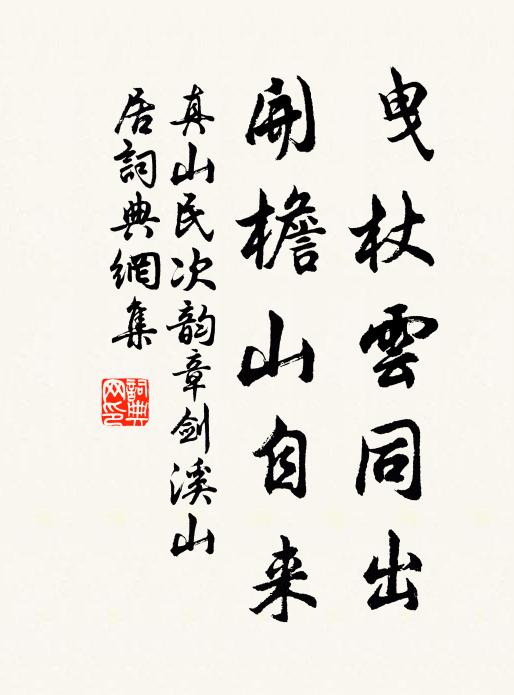 曳杖雲同出
開檐山自来
真山民次韵章劍溪山
居詞典網集
詞典網印